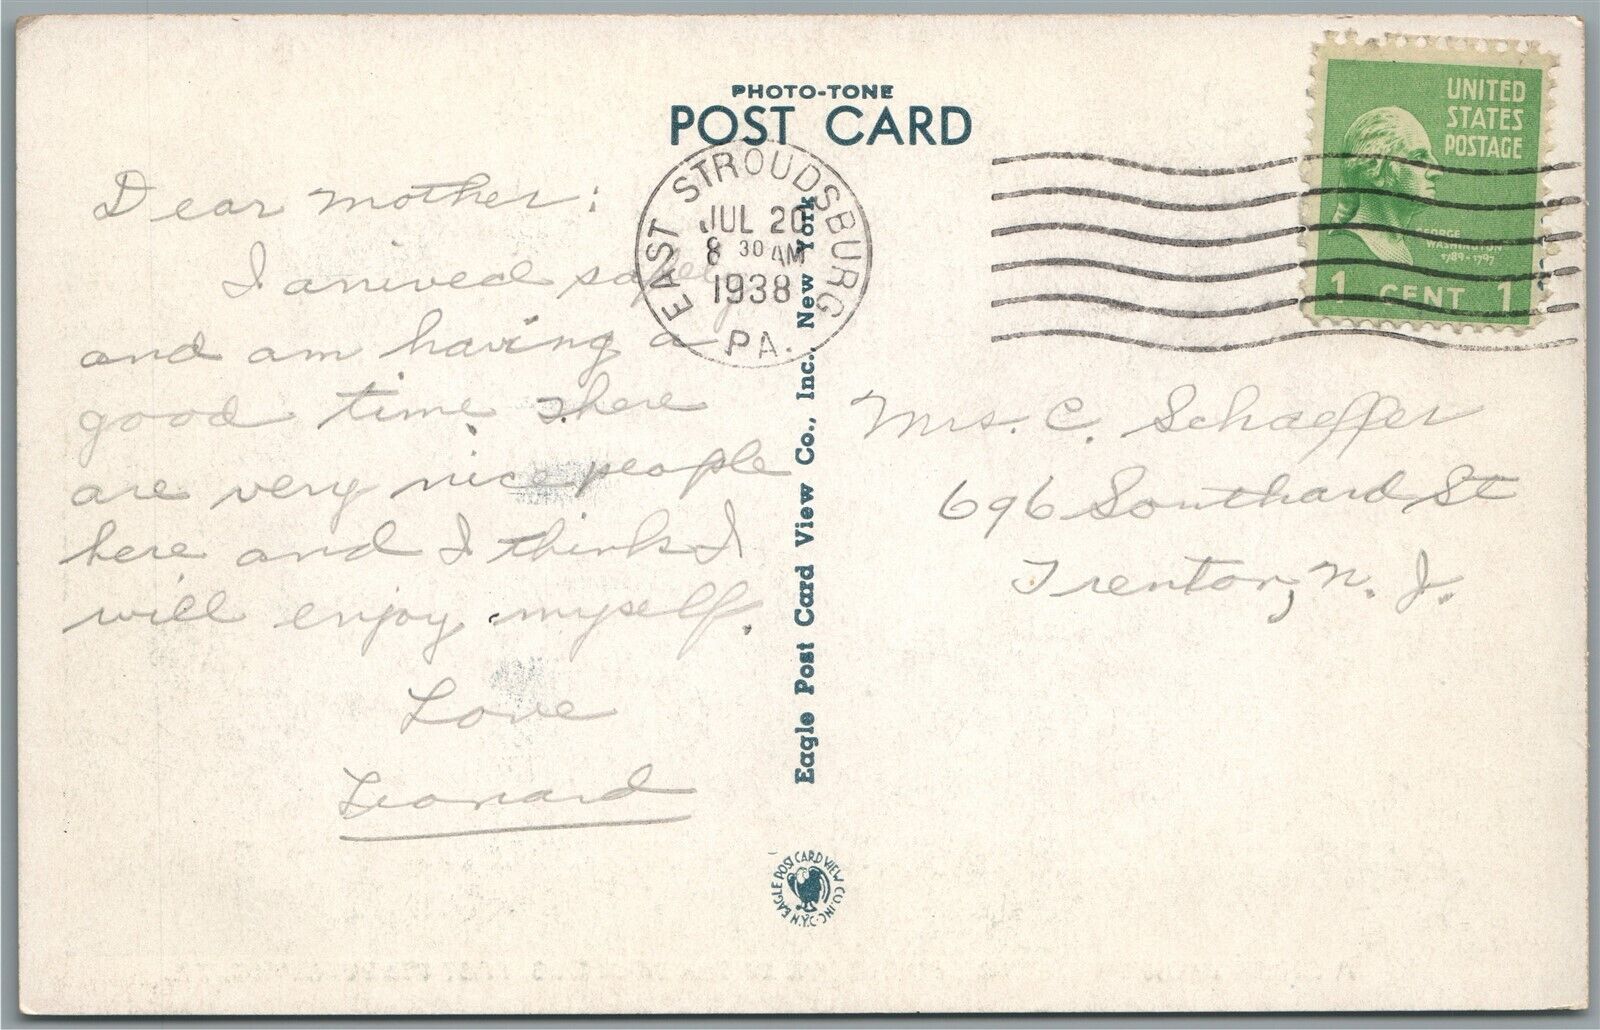 PHOTO-TONE
POST CARD
EAST STROUDSBURG
JUL 20
8 30 AM
1938
PA.
UNITED
STATES
POSTAGE
GEORGE
WASHINGTON
1789-1797
1 CENT 1
Dear Mother:
I arrived safely
and am having a
good time. There
are very nice people
here and I think I
will enjoy myself.
Love
Leonard
Eagle Post Card View Co., Inc. New York
Mrs. C. Schaeffer
696 Southard St
Trenton, N. J.
EAGLE POST CARD VIEW CO. INC. N.Y.C.